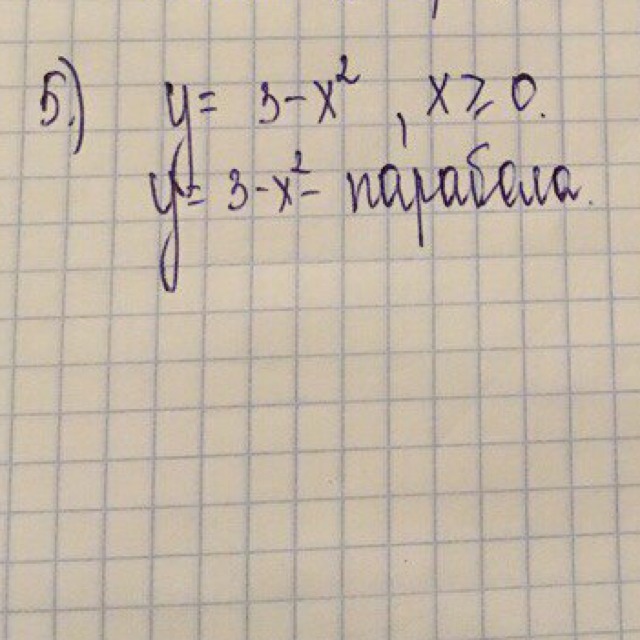 Б.) y = 3-x² , x ≥ 0.
y = 3-x² - парабала.